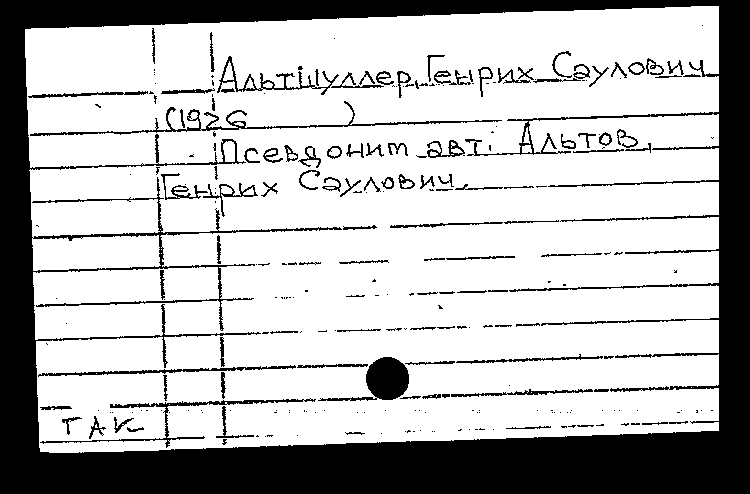 Альтшуллер, Генрих Саулович
(1926 )
Псевдоним авт. Альтов,
Генрих Саулович.
ТАК